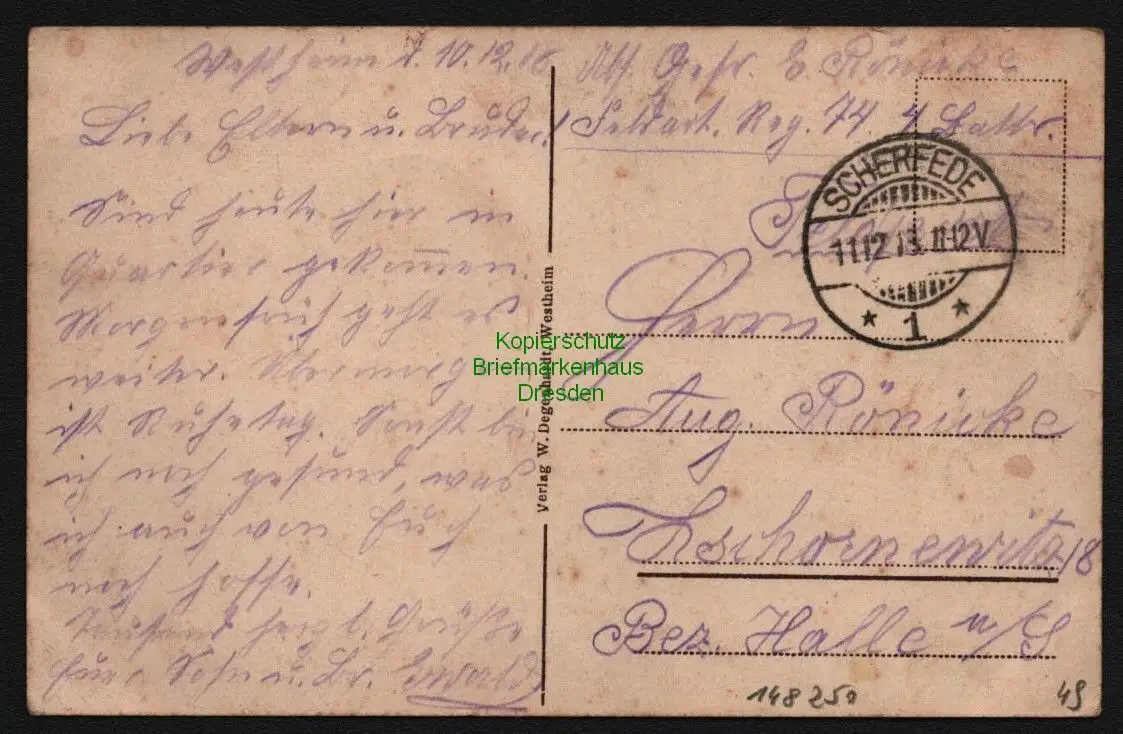 Westheim d. 10.12.18
Liebe Eltern u. Bruder!
Sind heute hier in
Quartier gekommen.
Morgenfrüh geht es
weiter. Übermorg
ist Ruhetag. Sonst bin
ich noch gesund, was
ich auch von Euch
noch hoffe.
Tausend herzl. Grüße
Euer Sohn u. Br. Ewald
Verlag W. Degenhardt, Westheim
Abs. Gefr. E. Rönicke
Feldart. Reg. 74 4 Battr.
Feldpost
SCHERFEDE
11.12.18. 11-12V
* 1 *
Herrn
Aug. Rönicke
Zschornewitz 18
Bez. Halle a/S
148250
49
Kopierschutz
Briefmarkenhaus
Dresden